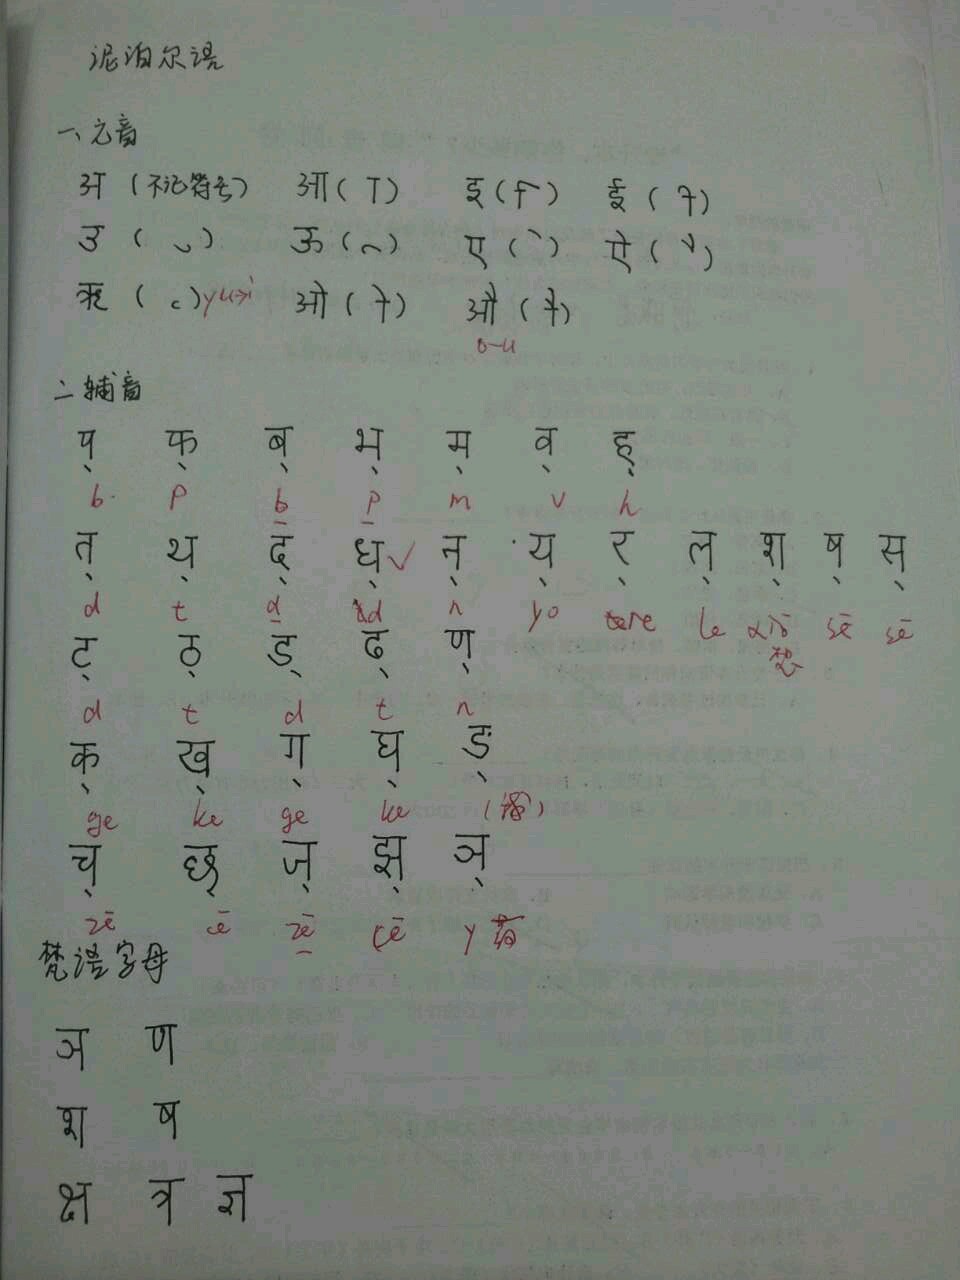 泥泊尔语
一、元音
अ (不记符号) आ (ा) इ (ि) ई (ी)
उ (ु) ऊ (ू) ए (े) ऐ (ै)
ऋ (ृ) yu→i ओ (ो) औ (ौ)
o-u
二辅音
प् फ् ब् भ् म् व् ह्
b p b p m v h
त् थ् द् ध् ✓ न् य् र् ल् श् ष् स्
d t d d n yo re le sē sē
梵
ट् ठ् ड् ढ् ण्
d t d t n
क् ख् ग् घ् ङ्
ge ke ge ke
च् छ् ज् झ् ञ्
zē cē zē cē y
梵语字母
ञ ण
श ष
क्ष त्र ज्ञ